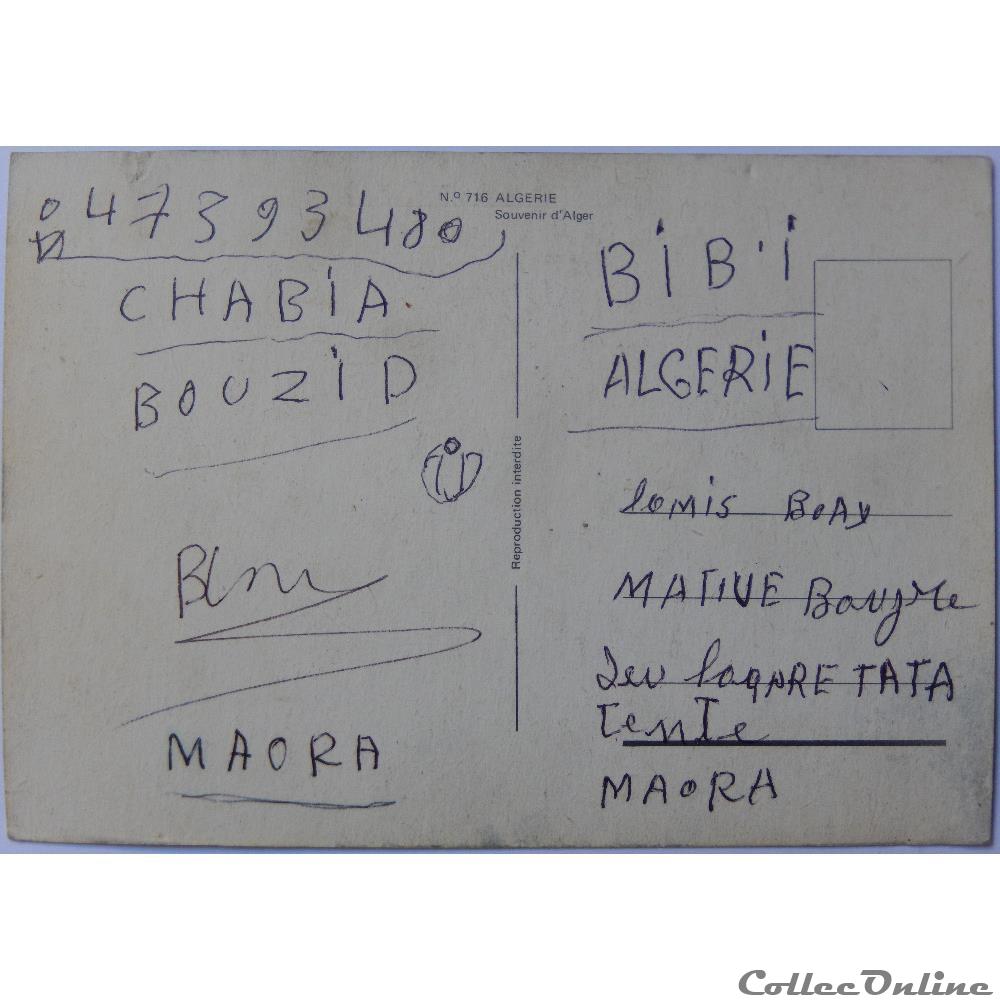 047393480
N.º 716 ALGERIE
Souvenir d'Alger
CHABIA
BOUZID
MAORA
Reproduction interdite
BIB'I
ALGERIE
lomis BOAY
MATIUE
TATA
TenTe
MAORA
CollecOnline